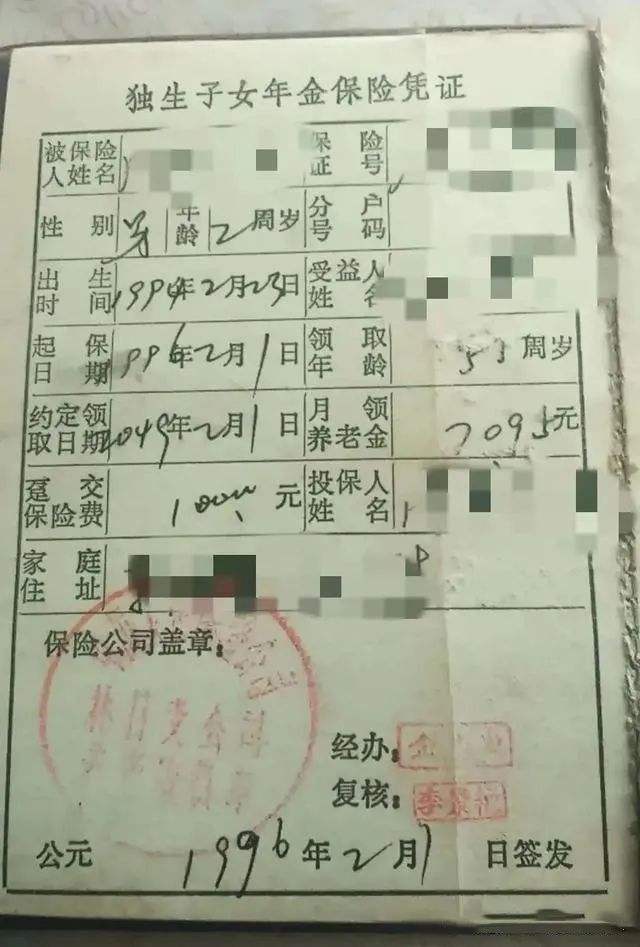 独生子女年金保险凭证
被保险人姓名 保险证号
性别 男 年龄 2周岁 分户号码
出生时间 1994年2月23日 受益人姓名
起保日期 1996年2月1日 领取年龄 55周岁
约定领取日期 2049年2月1日 月领养老金 7095元
趸交保险费 元 投保人姓名
家庭住址
保险公司盖章：
经办：
复核：
公元 1996年2月1日签发